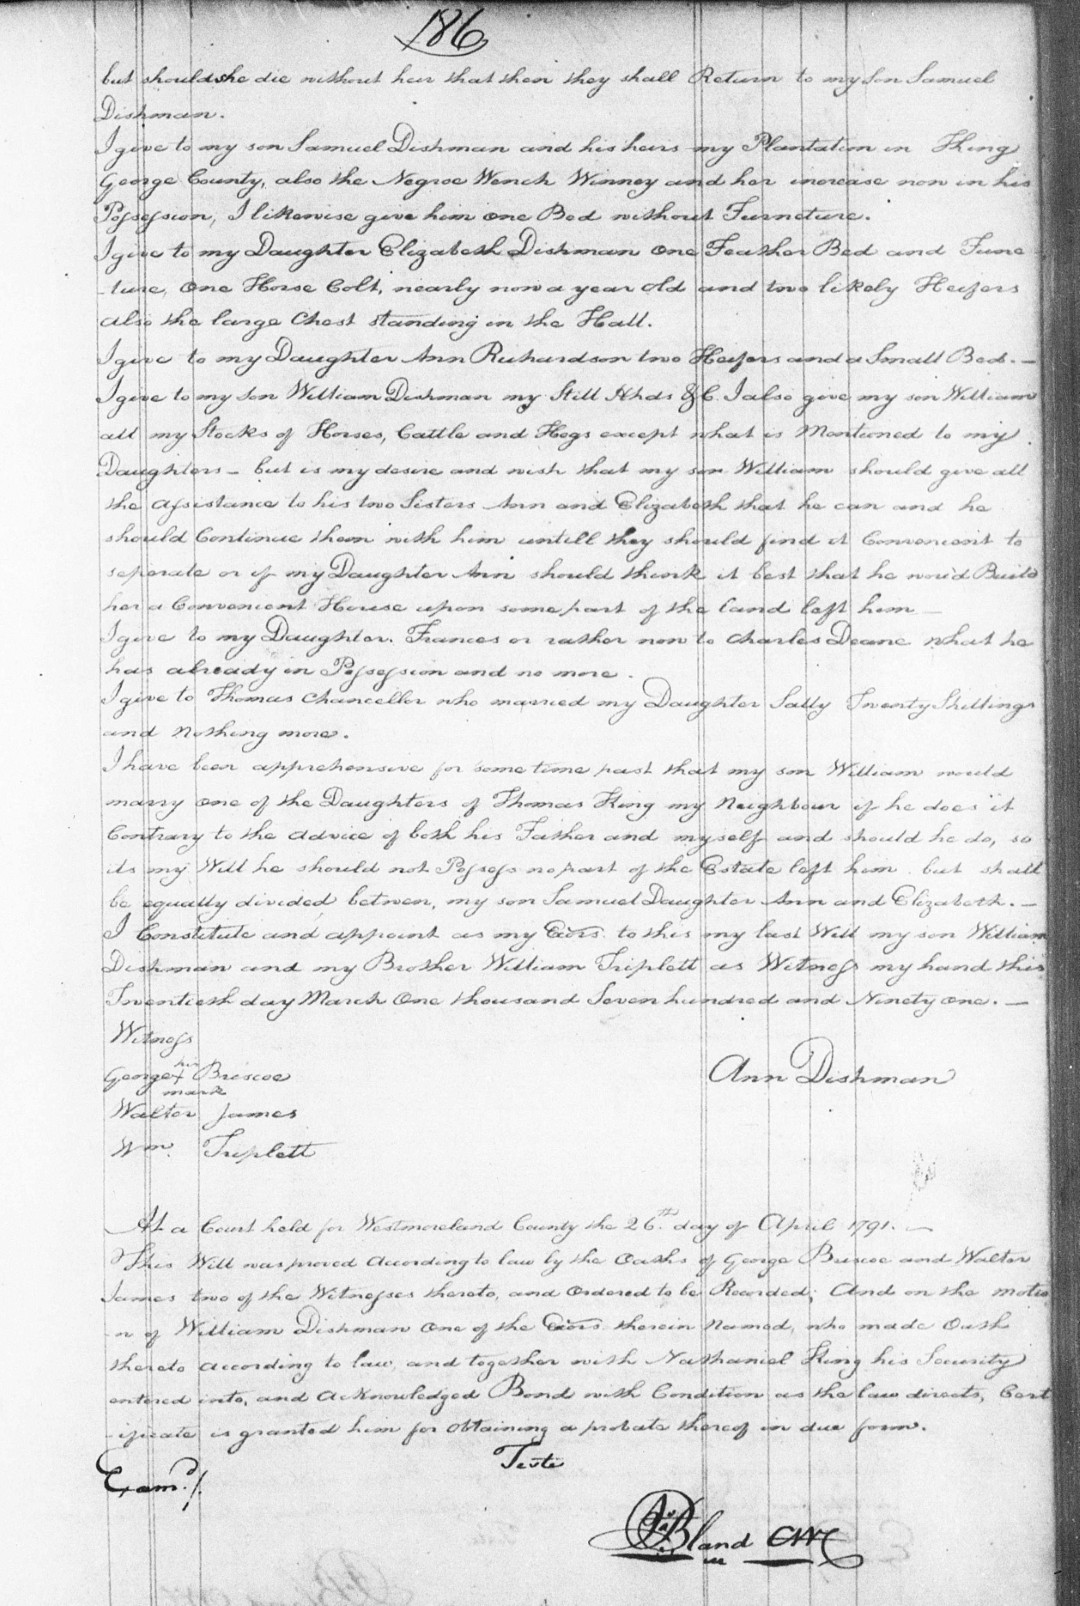 186
but should she die without heir that then they shall Return to my Son Samuel
Dishman.
I give to my son Samuel Dishman and his heirs my Plantation in King
George County, also the Negroe Wench Winney and her increase now in his
Possession, I likewise give him one Bed without Furneture.
I give to my Daughter Elizabeth Dishman One Feather Bed and Furne
-ture, One Horse Colt, nearly now a year old and two likely Heifers
also the large Chest standing in the Hall.
I give to my Daughter Ann Richardson two Heifers and a Small Bed. —
I give to my son William Dishman my Still Hhds &C. I also give my son William
all my Stocks of Horses, Cattle and Hogs except what is Mentioned to my
Daughters — but is my desire and wish that my son William should give all
the Assistance to his two Sisters Ann and Elizabeth that he can and he
should Continue them with him untill they should find it Convenient to
seperate or if my Daughter Ann should think it best that he wou'd Build
her a Convenient House upon some part of the land left him —
I give to my Daughter Frances or rather now to Charles Deane what he
has already in Possession and no more.
I give to Thomas Chancellor who married my Daughter Sally Twenty Shillings
and nothing more.
I have been apprehensive for some time past that my son William would
marry one of the Daughters of Thomas King my Neighbour if he does it
Contrary to the advice of both his Father and myself and should he do, so
its my Will he should not Possess no part of the Estate left him but shall
be equally divided between, my son Samuel Daughter Ann and Elizabeth. —
I Constitute and appoint as my Exors. to this my last Will my son William
Dishman and my Brother William Triplett as Witness my hand this
Twentieth day March One thousand Seven hundred and Ninety one. —
Witness
George his + mark Briscoe
Ann Dishman
Walter James
Wm. Triplett
At a Court held for Westmoreland County the 26th. day of April 1791. —
This Will was proved According to law by the Oaths of George Briscoe and Walter
James two of the Witnesses thereto, and Ordered to be Recorded; And on the motio
-n of William Dishman One of the Exors therein Named, who made Oath
thereto according to law, and together with Nathaniel King his Security
entered into, and acknowledged Bond with Condition as the law directs, Cert
-ificate is granted him for obtaining a probate thereof in due form.
Teste
Examd./.
Bland CWC